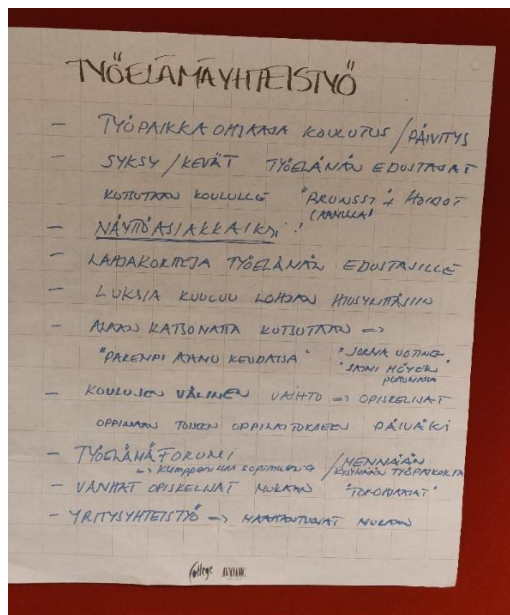 TYÖELÄMÄYHTEISTYÖ
- TYÖPAIKKAOHJAAJA KOULUTUS / PÄIVITYS
- SYKSY / KEVÄT TYÖELÄMÄN EDUSTAJAT
KUTSUTAAN KOULULLE "BRUNSSI + HOIDOT
- NÄYTTÖASIAKKAIKSI!
- LAHJAKORTTEJA TYÖELÄMÄN EDUSTAJILLE
- LUKSIA KUULUU LOHJAN
- ALAAN KATSOMATTA KUTSUTAAN ->
"PAREMPI AAMU KEUDASSA" "JORMA UOTINEN"
"JANI HÖYER
PUHUMASSA
- KOULUJEN VÄLINEN VAIHTO -> OPISKELIJAT
OPPIMAAN TOISEEN OPPILAITOKSEEN PÄIVÄKSI
- TYÖELÄMÄFORUMI / MENNÄÄN
-> kumppanuussopimuksia KYSYMÄÄN TYÖPAIKOILTA
- VANHAT OPISKELIJAT MUKAAN
- YRITYSYHTEISTYÖ -> MAAHANTUOJAT MUKAAN
College